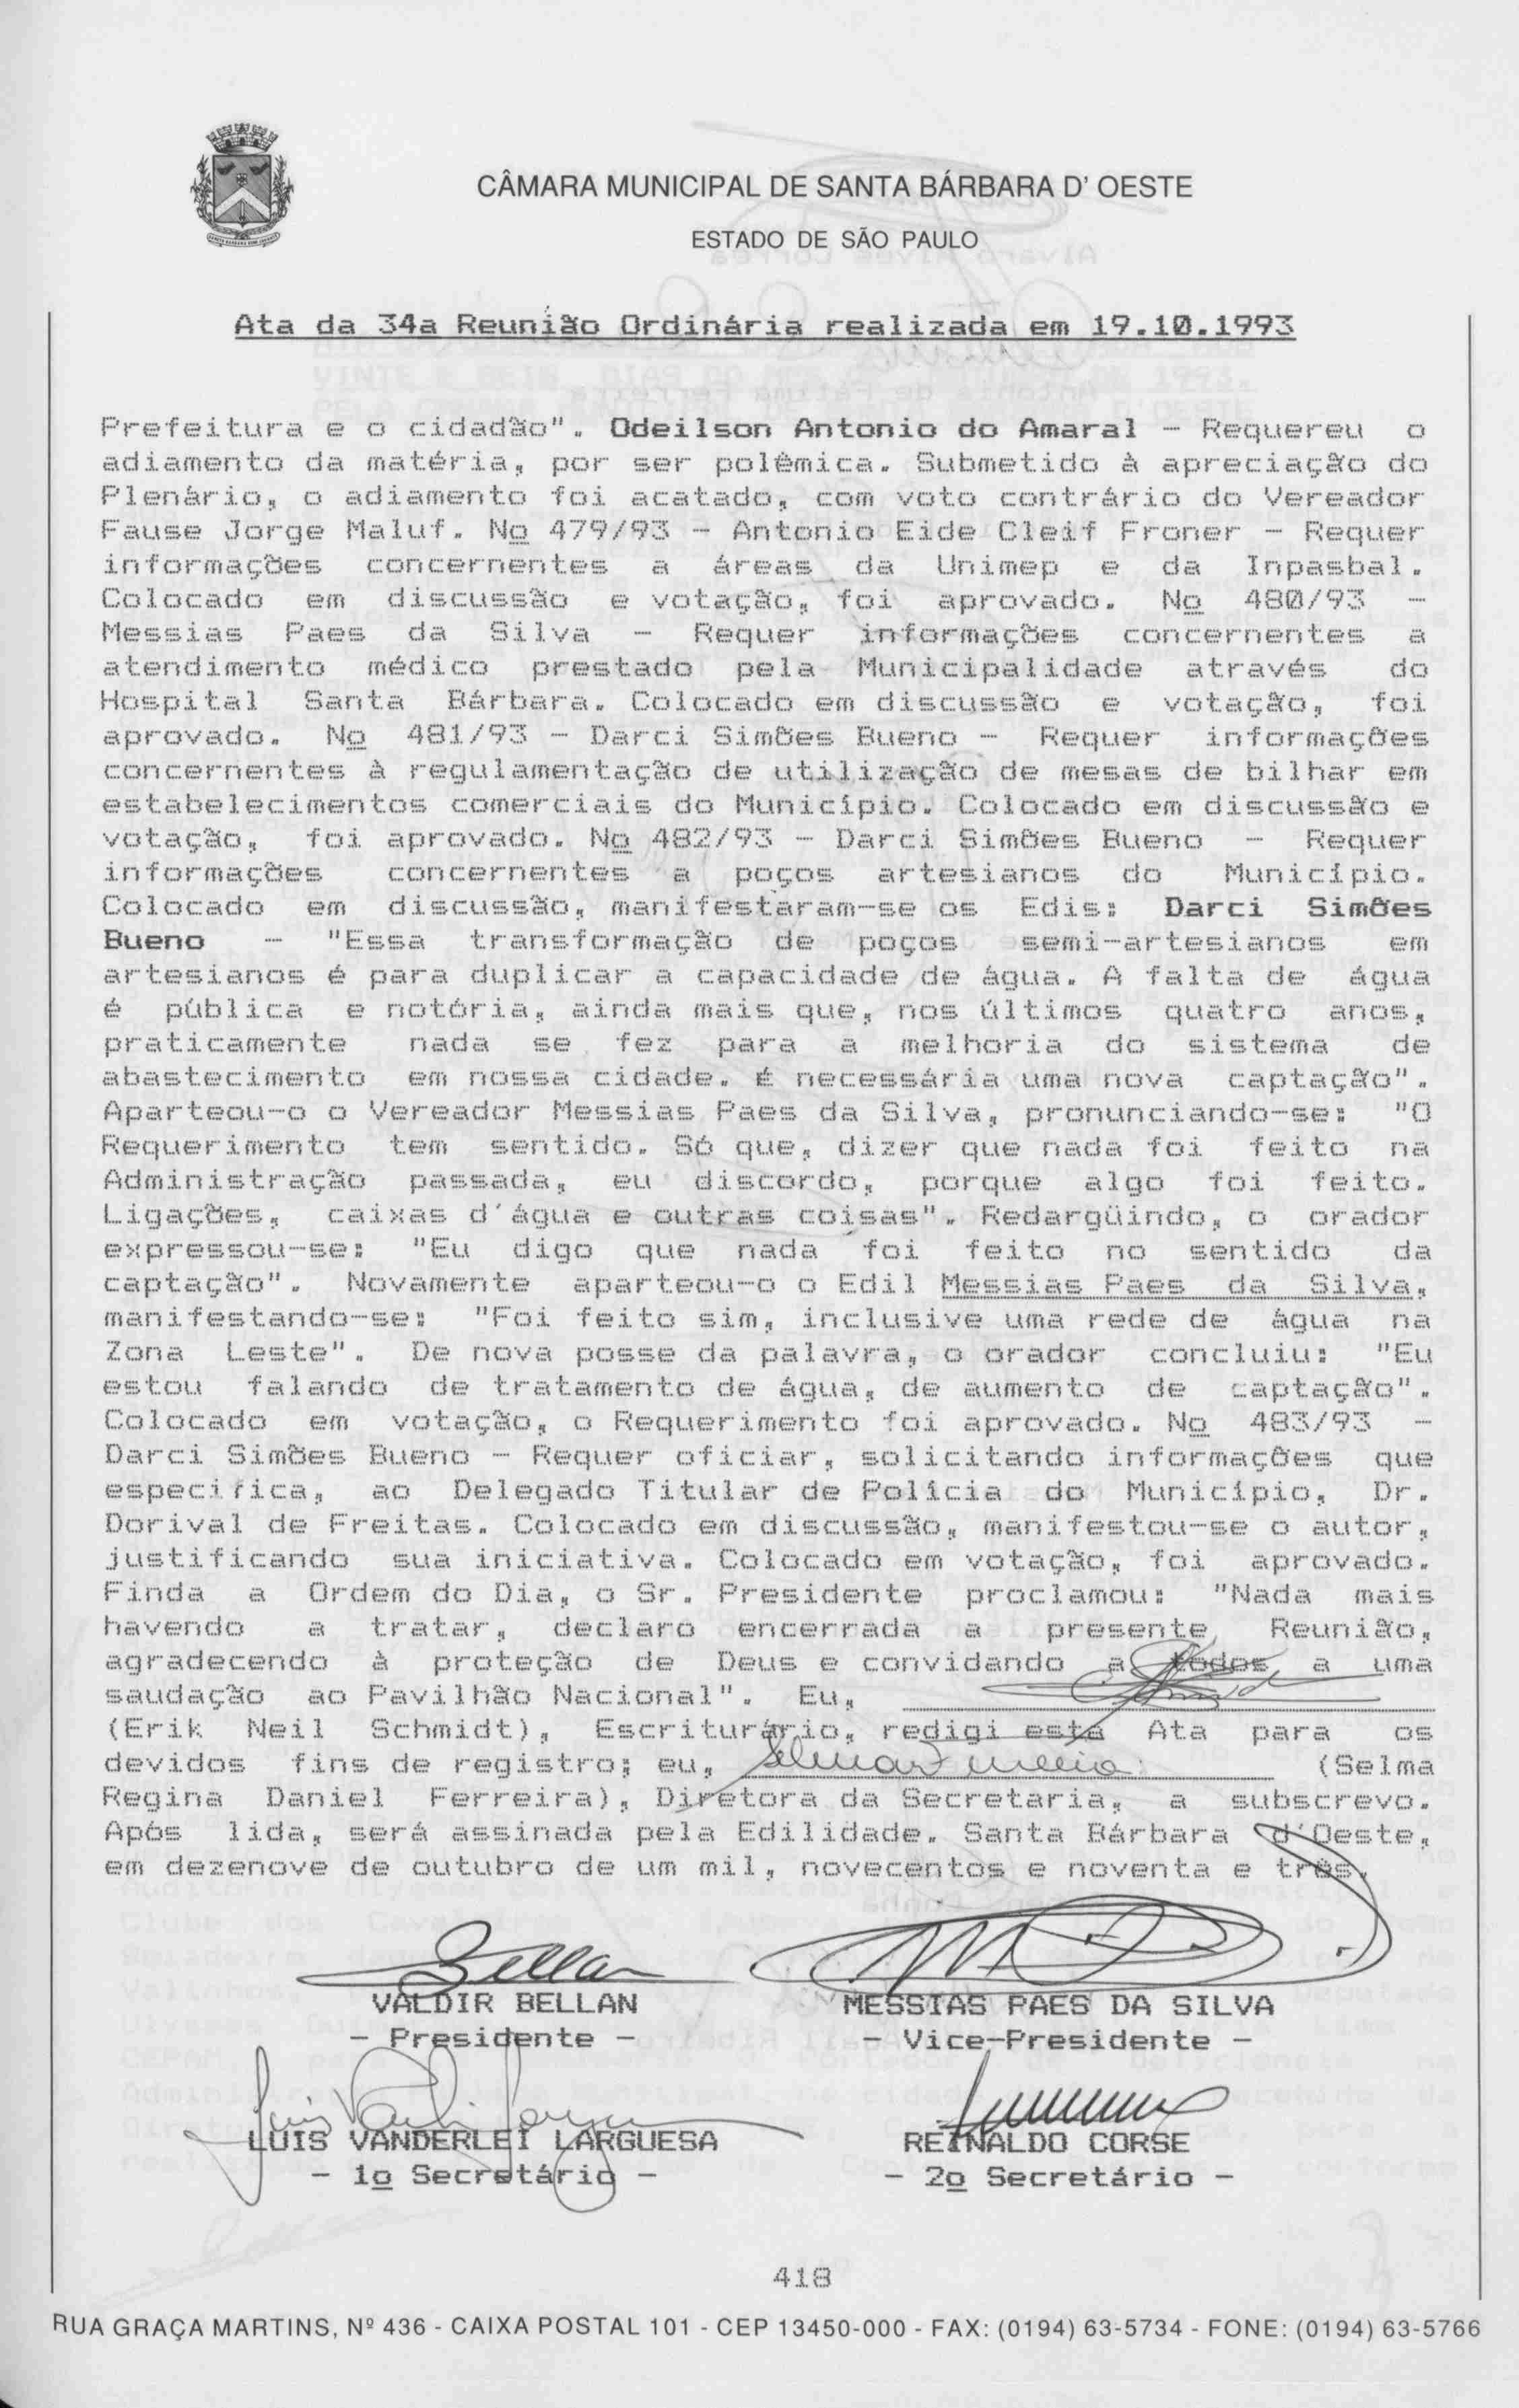 CÂMARA MUNICIPAL DE SANTA BÁRBARA D' OESTE
ESTADO DE SÃO PAULO
Ata da 34a Reunião Ordinária realizada em 19.10.1993
Prefeitura e o cidadão". Odeilson Antonio do Amaral - Requereu o
adiamento da matéria, por ser polêmica. Submetido à apreciação do
Plenário, o adiamento foi acatado, com voto contrário do Vereador
Fause Jorge Maluf. No 479/93 - Antonio Eide Cleif Froner - Requer
informações concernentes a áreas da Unimep e da Inpasbal.
Colocado em discussão e votação, foi aprovado. No 480/93 -
Messias Paes da Silva - Requer informações concernentes a
atendimento médico prestado pela Municipalidade através do
Hospital Santa Bárbara. Colocado em discussão e votação, foi
aprovado. No 481/93 - Darci Simões Bueno - Requer informações
concernentes à regulamentação de utilização de mesas de bilhar em
estabelecimentos comerciais do Município. Colocado em discussão e
votação, foi aprovado. No 482/93 - Darci Simões Bueno - Requer
informações concernentes a poços artesianos do Município.
Colocado em discussão, manifestaram-se os Edis: Darci Simões
Bueno - "Essa transformação de poços semi-artesianos em
artesianos é para duplicar a capacidade de água. A falta de água
é pública e notória, ainda mais que, nos últimos quatro anos,
praticamente nada se fez para a melhoria do sistema de
abastecimento em nossa cidade. É necessária uma nova captação".
Aparteou-o o Vereador Messias Paes da Silva, pronunciando-se: "O
Requerimento tem sentido. Só que, dizer que nada foi feito na
Administração passada, eu discordo, porque algo foi feito.
Ligações, caixas d'água e outras coisas". Redargüindo, o orador
expressou-se: "Eu digo que nada foi feito no sentido da
captação". Novamente aparteou-o o Edil Messias Paes da Silva,
manifestando-se: "Foi feito sim, inclusive uma rede de água na
Zona Leste". De nova posse da palavra, o orador concluiu: "Eu
estou falando de tratamento de água, de aumento de captação".
Colocado em votação, o Requerimento foi aprovado. No 483/93 -
Darci Simões Bueno - Requer oficiar, solicitando informações que
especifica, ao Delegado Titular de Polícia do Município, Dr.
Dorival de Freitas. Colocado em discussão, manifestou-se o autor,
justificando sua iniciativa. Colocado em votação, foi aprovado.
Finda a Ordem do Dia, o Sr. Presidente proclamou: "Nada mais
havendo a tratar, declaro encerrada a presente Reunião,
agradecendo à proteção de Deus e convidando a todos a uma
saudação ao Pavilhão Nacional". Eu,
(Erik Neil Schmidt), Escriturário, redigi esta Ata para os
devidos fins de registro; eu, (Selma
Regina Daniel Ferreira), Diretora da Secretaria, a subscrevo.
Após lida, será assinada pela Edilidade. Santa Bárbara d'Oeste,
em dezenove de outubro de um mil, novecentos e noventa e três.
Bellan
VALDIR BELLAN MESSIAS PAES DA SILVA
- Presidente - - Vice-Presidente -
LUIS VANDERLEI LARGUESA REINALDO CORSE
- 1o Secretário - - 2o Secretário -
418
RUA GRAÇA MARTINS, Nº 436 - CAIXA POSTAL 101 - CEP 13450-000 - FAX: (0194) 63-5734 - FONE: (0194) 63-5766